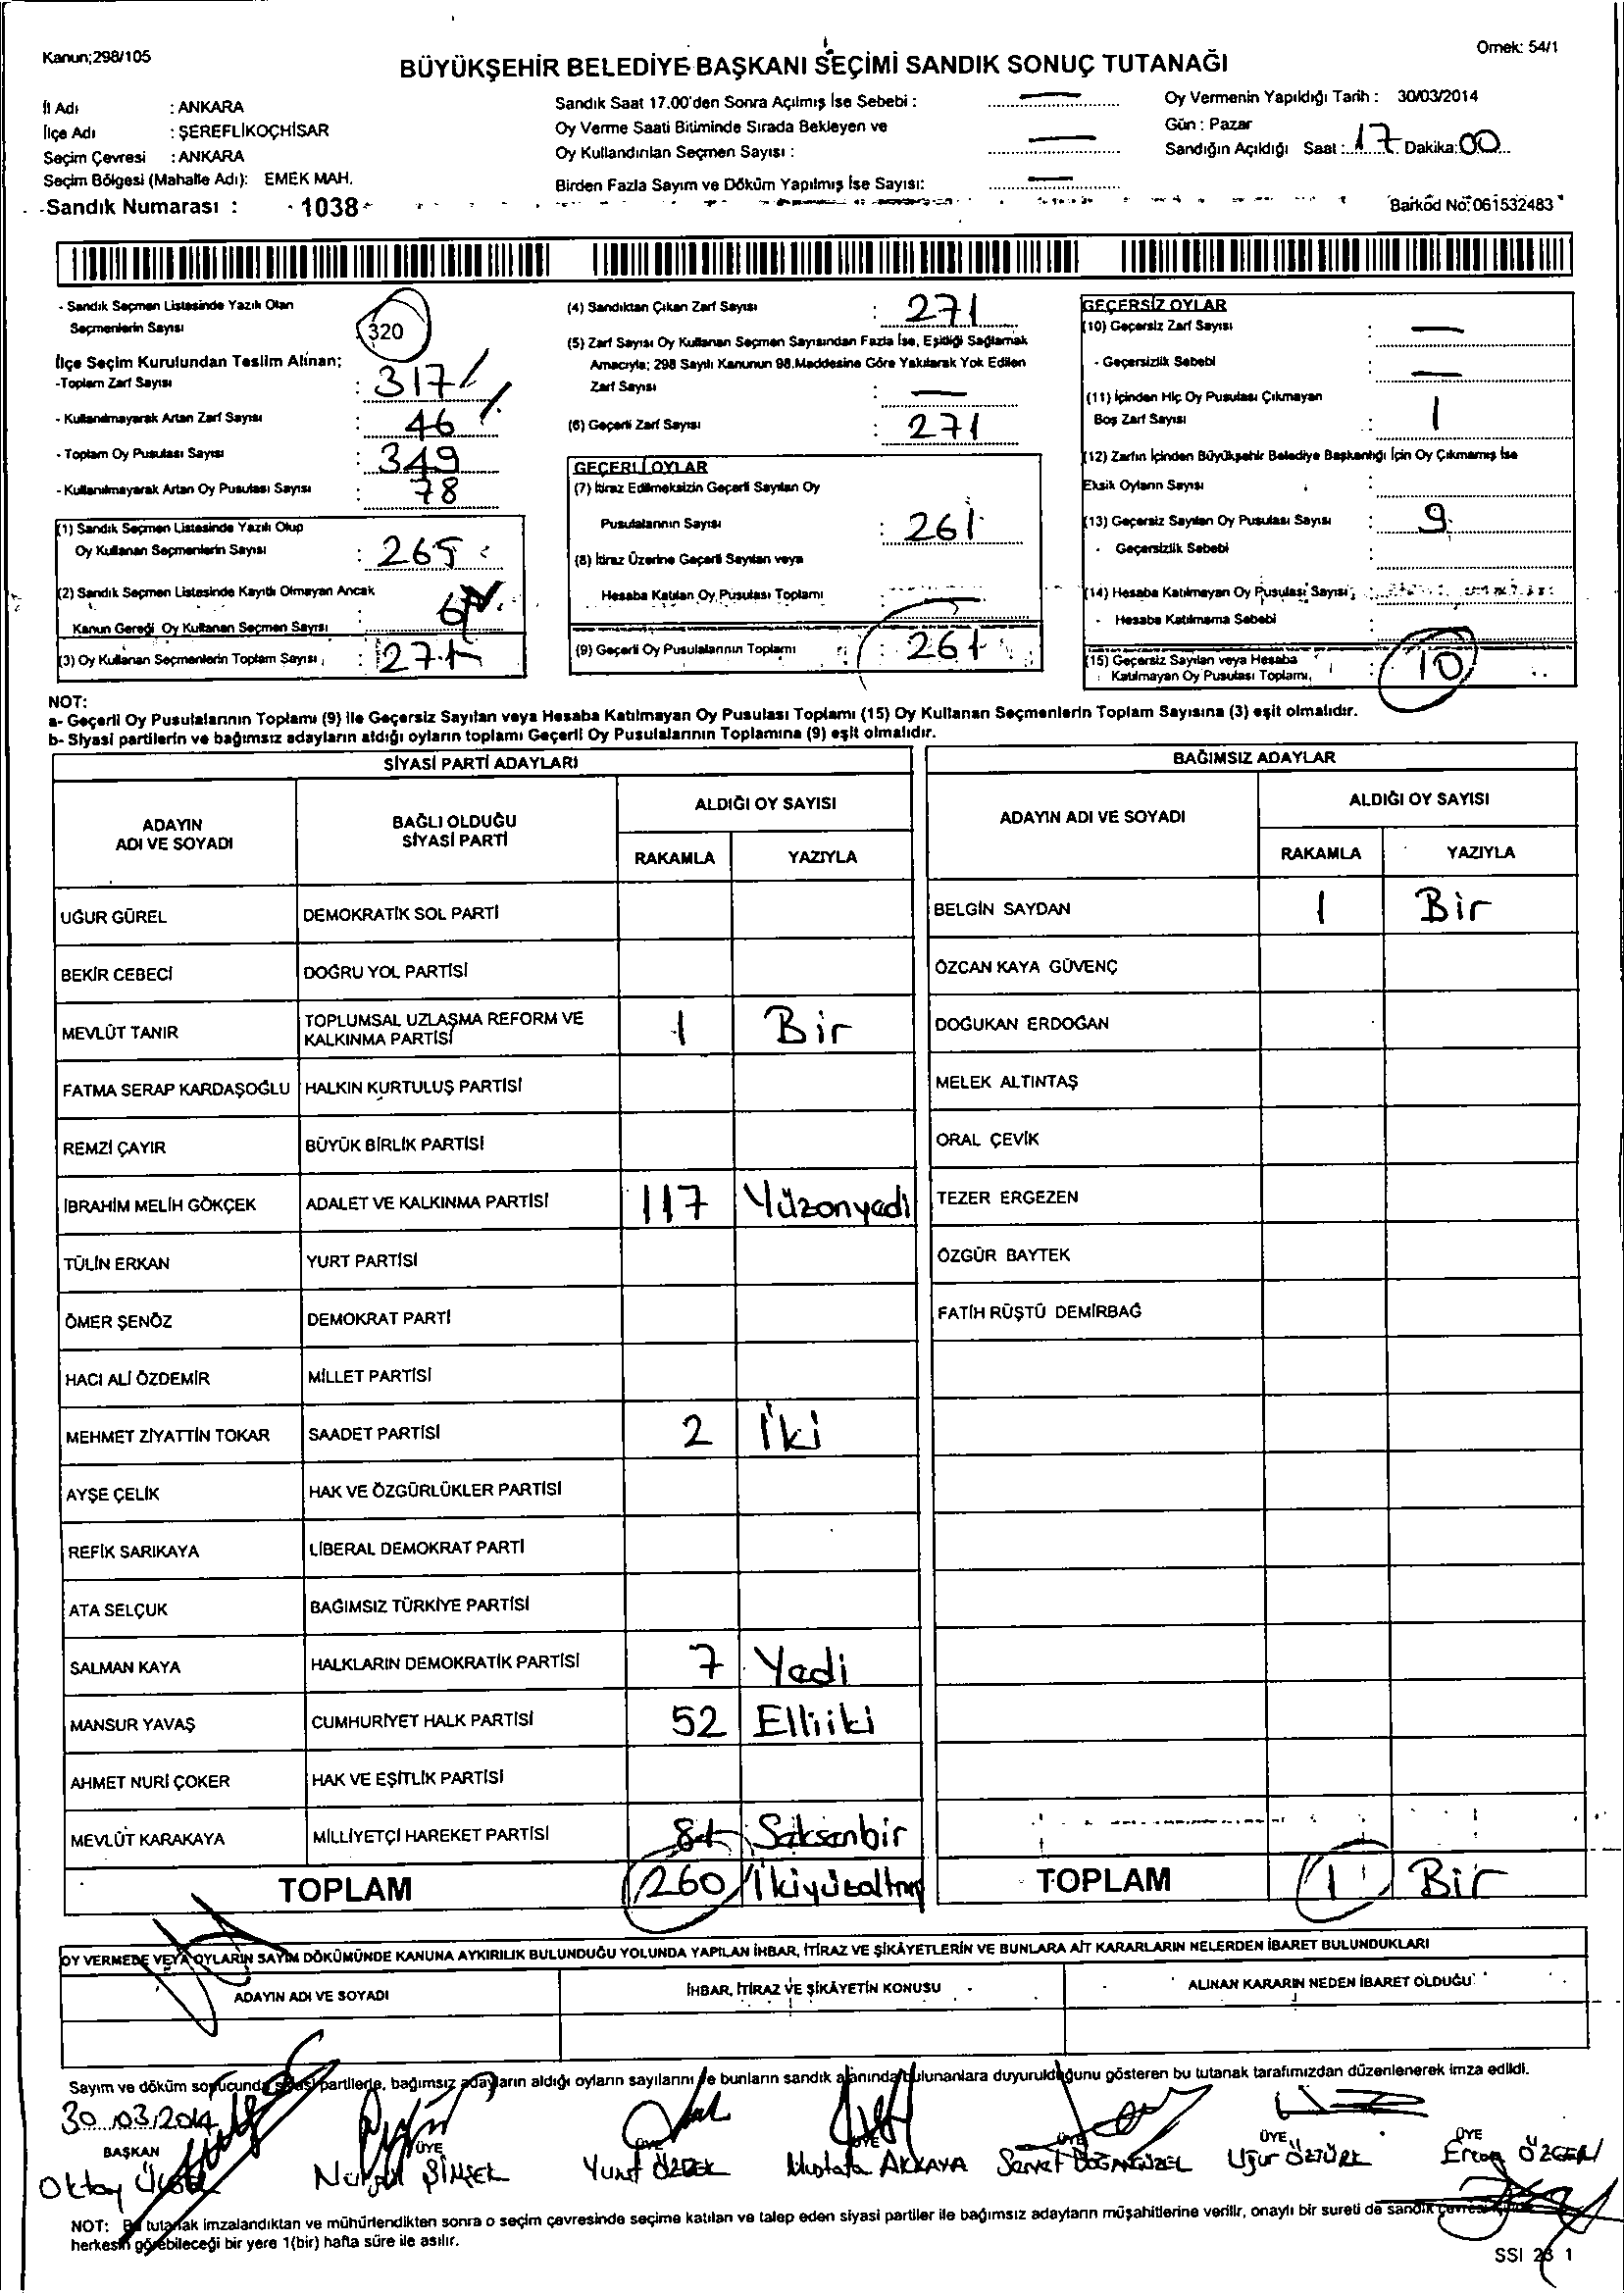 Kanun;298/105
Örnek: 54/1
BÜYÜKŞEHİR BELEDİYE BAŞKANI SEÇİMİ SANDIK SONUÇ TUTANAĞI
İl Adı : ANKARA
İlçe Adı : ŞEREFLİKOÇHİSAR
Seçim Çevresi : ANKARA
Seçim Bölgesi (Mahalle Adı): EMEK MAH.
Sandık Numarası : 1038
Sandık Saat 17.00'den Sonra Açılmış İse Sebebi : —
Oy Verme Saati Bitiminde Sırada Bekleyen ve
Oy Kullandırılan Seçmen Sayısı : —
Birden Fazla Sayım ve Döküm Yapılmış İse Sayısı: —
Oy Vermenin Yapıldığı Tarih : 30/03/2014
Gün : Pazar
Sandığın Açıldığı Saat : 17 Dakika: 00
Barkod No: 061532483
- Sandık Seçmen Listesinde Yazılı Olan
Seçmenlerin Sayısı : 320
İlçe Seçim Kurulundan Teslim Alınan;
-Toplam Zarf Sayısı : 317
- Kullanılmayarak Artan Zarf Sayısı : 46
- Toplam Oy Pusulası Sayısı : 349
- Kullanılmayarak Artan Oy Pusulası Sayısı : 78
(1) Sandık Seçmen Listesinde Yazılı Olup
Oy Kullanan Seçmenlerin Sayısı : 265
(2) Sandık Seçmen Listesinde Kayıtlı Olmayan Ancak
Kanun Gereği Oy Kullanan Seçmen Sayısı : 6
(3) Oy Kullanan Seçmenlerin Toplam Sayısı : 271
(4) Sandıktan Çıkan Zarf Sayısı : 271
(5) Zarf Sayısı Oy Kullanan Seçmen Sayısından Fazla İse, Eşitliği Sağlamak
Amacıyla; 298 Sayılı Kanunun 98.Maddesine Göre Yakılarak Yok Edilen
Zarf Sayısı : —
(6) Geçerli Zarf Sayısı : 271
GEÇERLİ OYLAR
(7) İtiraz Edilmeksizin Geçerli Sayılan Oy
Pusulalarının Sayısı : 261
(8) İtiraz Üzerine Geçerli Sayılan veya
Hesaba Katılan Oy Pusulası Toplamı
(9) Geçerli Oy Pusulalarının Toplamı : 261
GEÇERSİZ OYLAR
(10) Geçersiz Zarf Sayısı : —
- Geçersizlik Sebebi : —
(11) İçinden Hiç Oy Pusulası Çıkmayan
Boş Zarf Sayısı : 1
(12) Zarfın İçinden Büyükşehir Belediye Başkanlığı İçin Oy Çıkmamış İse
Eksik Oyların Sayısı :
(13) Geçersiz Sayılan Oy Pusulası Sayısı : 9
- Geçersizlik Sebebi :
(14) Hesaba Katılmayan Oy Pusulası Sayısı :
- Hesaba Katılmama Sebebi :
(15) Geçersiz Sayılan veya Hesaba
Katılmayan Oy Pusulası Toplamı, : 10
NOT:
a- Geçerli Oy Pusulalarının Toplamı (9) ile Geçersiz Sayılan veya Hesaba Katılmayan Oy Pusulası Toplamı (15) Oy Kullanan Seçmenlerin Toplam Sayısına (3) eşit olmalıdır.
b- Siyasi partilerin ve bağımsız adayların aldığı oyların toplamı Geçerli Oy Pusulalarının Toplamına (9) eşit olmalıdır.
SİYASİ PARTİ ADAYLARI
ADAYIN ADI VE SOYADI
BAĞLI OLDUĞU SİYASİ PARTİ
ALDIĞI OY SAYISI
RAKAMLA YAZIYLA
UĞUR GÜREL DEMOKRATİK SOL PARTİ
BEKİR CEBECİ DOĞRU YOL PARTİSİ
MEVLÜT TANIR TOPLUMSAL UZLAŞMA REFORM VE KALKINMA PARTİSİ 1 Bir
FATMA SERAP KARDAŞOĞLU HALKIN KURTULUŞ PARTİSİ
REMZİ ÇAYIR BÜYÜK BİRLİK PARTİSİ
İBRAHİM MELİH GÖKÇEK ADALET VE KALKINMA PARTİSİ 117 Yüzonyedi
TÜLİN ERKAN YURT PARTİSİ
ÖMER ŞENÖZ DEMOKRAT PARTİ
HACI ALİ ÖZDEMİR MİLLET PARTİSİ
MEHMET ZİYATTİN TOKAR SAADET PARTİSİ 2 İki
AYŞE ÇELİK HAK VE ÖZGÜRLÜKLER PARTİSİ
REFİK SARIKAYA LİBERAL DEMOKRAT PARTİ
ATA SELÇUK BAĞIMSIZ TÜRKİYE PARTİSİ
SALMAN KAYA HALKLARIN DEMOKRATİK PARTİSİ 7 Yedi
MANSUR YAVAŞ CUMHURİYET HALK PARTİSİ 52 Elliiki
AHMET NURİ ÇOKER HAK VE EŞİTLİK PARTİSİ
MEVLÜT KARAKAYA MİLLİYETÇİ HAREKET PARTİSİ 81 Seksenbir
TOPLAM 260 İkiyüzaltmış
BAĞIMSIZ ADAYLAR
ADAYIN ADI VE SOYADI
ALDIĞI OY SAYISI
RAKAMLA YAZIYLA
BELGİN SAYDAN 1 Bir
ÖZCAN KAYA GÜVENÇ
DOĞUKAN ERDOĞAN
MELEK ALTINTAŞ
ORAL ÇEVİK
TEZER ERGEZEN
ÖZGÜR BAYTEK
FATİH RÜŞTÜ DEMİRBAĞ
TOPLAM 1 Bir
OY VERMEDE VEYA OYLARIN SAYIM DÖKÜMÜNDE KANUNA AYKIRILIK BULUNDUĞU YOLUNDA YAPILAN İHBAR, İTİRAZ VE ŞİKÂYETLERİN VE BUNLARA AİT KARARLARIN NELERDEN İBARET BULUNDUKLARI
ADAYIN ADI VE SOYADI İHBAR, İTİRAZ VE ŞİKÂYETİN KONUSU ALINAN KARARIN NEDEN İBARET OLDUĞU
Sayım ve döküm sonucunda siyasi partilerle, bağımsız adayların aldığı oyların sayılarını ve bunların sandık alanında bulunanlara duyurulduğunu gösteren bu tutanak tarafımızdan düzenlenerek imza edildi.
30.03.2014
BAŞKAN ÜYE ÜYE ÜYE ÜYE ÜYE ÜYE
Oktay Nurgül ŞİMŞEK Yusuf ÖZBEK Mustafa AKKAYA Servet DOĞANGÜZEL Uğur ÖZTÜRK Ercan ÖZGEN
NOT: Bu tutanak imzalandıktan ve mühürlendikten sonra o seçim çevresinde seçime katılan ve talep eden siyasi partiler ile bağımsız adayların müşahitlerine verilir, onaylı bir sureti de sandık çevresi içinde
herkesin görebileceği bir yere 1(bir) hafta süre ile asılır.
SSI 23 1